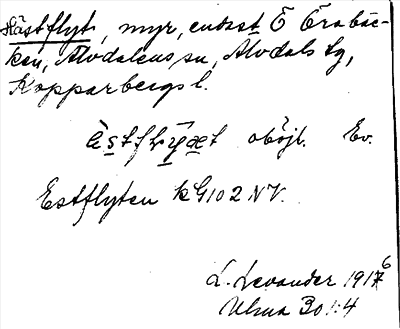 Hästflyt, myr, endast Ö Öråbäc-
ken, Älvdalens sn, Älvdals tg,
Kopparbergs l.
obōjl. Ev.
Estflyten kG102NV.
L. Levander 1916
Ulma 301:4